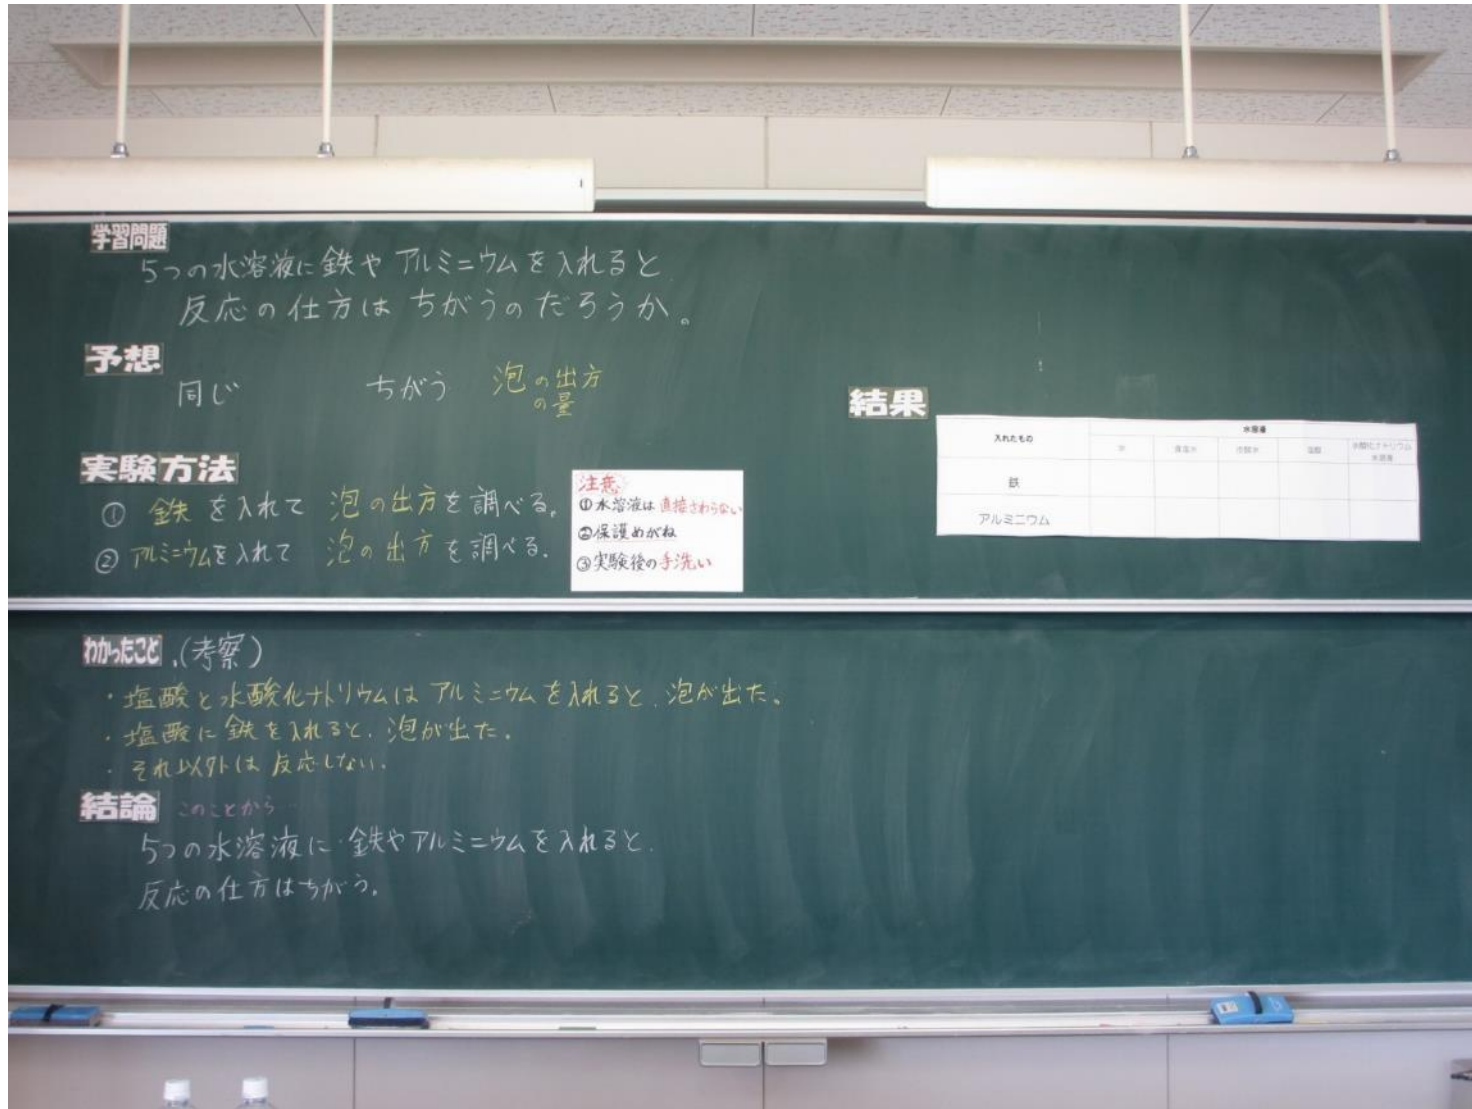 学習問題
5つの水溶液に鉄やアルミニウムを入れると
反応の仕方はちがうのだろうか。
予想
同じ ちがう 泡の出方
の量
実験方法
① 鉄を入れて 泡の出方を調べる。
② アルミニウムを入れて 泡の出方を調べる.
注意
①水溶液は直接さわらない
②保護めがね
③実験後の手洗い
結果
入れたもの 水溶液
水 食塩水 炭酸水 塩酸 水酸化ナトリウム
水溶液
鉄
アルミニウム
わかったこと.(考察)
・塩酸と水酸化ナトリウムはアルミニウムを入れると.泡が出た。
・塩酸に鉄を入れると.泡が出た。
・それ以外は反応しない.
結論 このことから
5つの水溶液に鉄やアルミニウムを入れると.
反応の仕方はちがう。